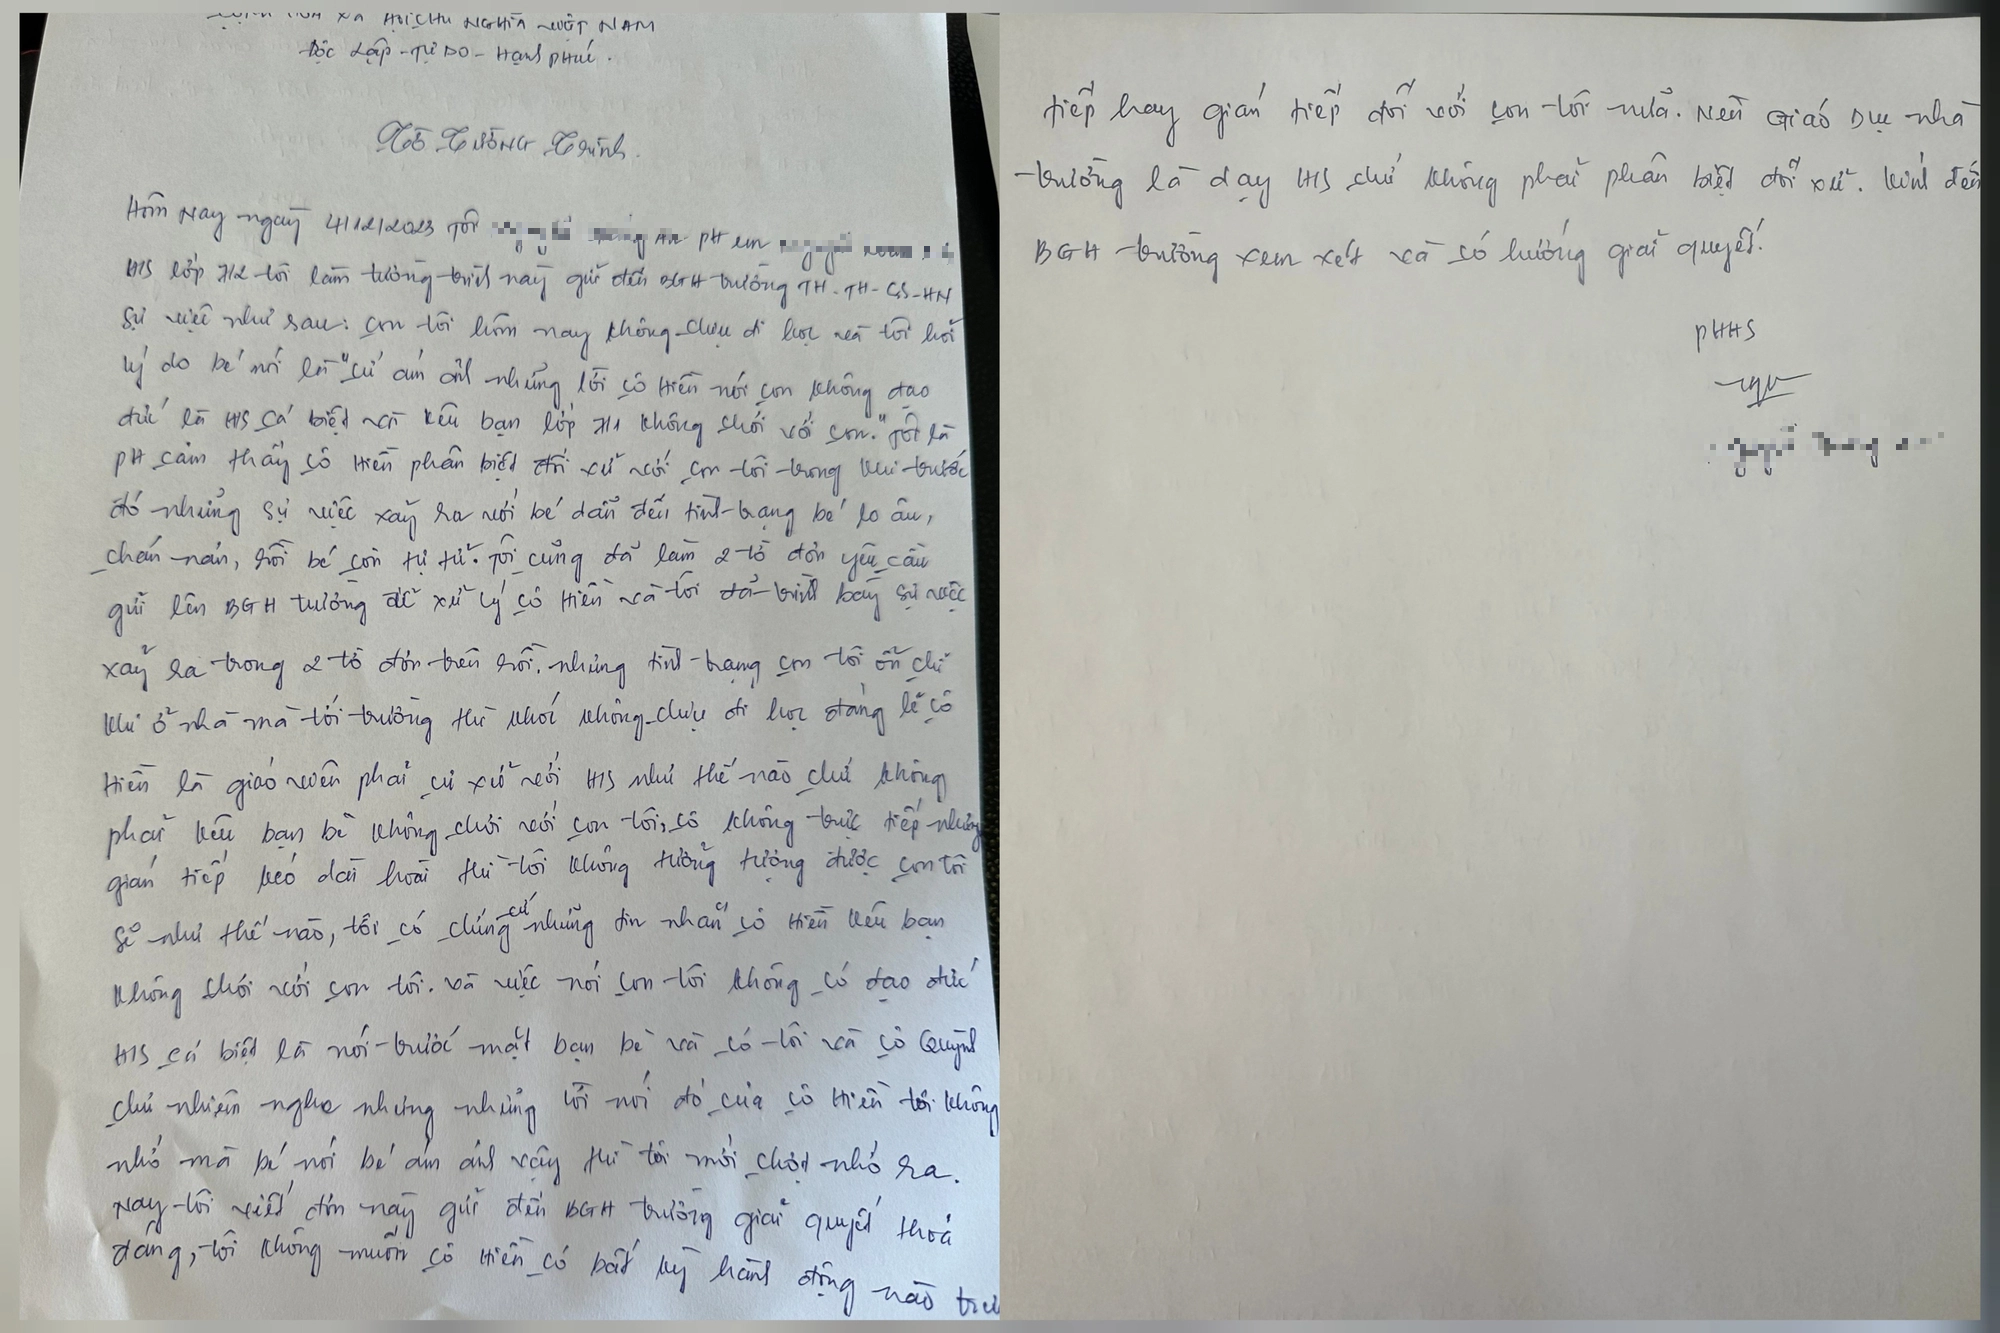 HỘI CHỦ NGHĨA VIỆT NAM
Độc Lập - Tự DO - Hạnh phúc.
Tờ Tường Trình.
Hôm Nay ngày 4/12/2023 Tôi PH em
HS lớp 7/2 tôi làm tường trình này gửi đến BGH trường TH-TH-CS-HN
Sự việc như sau: con tôi hôm nay không chịu đi học và tôi hỏi
lý do bé nói là "cứ ám ảnh những lời cô Hiền nói con không đạo
đức là HS cá biệt và kêu bạn lớp 7/1 không chơi với con." Tôi là
PH cảm thấy cô Hiền phân biệt đối xử với con tôi trong khi trước
đó những sự việc xảy ra với bé dẫn đến tình trạng bé lo âu,
chán nản, rồi bé còn tự tử. Tôi cũng đã làm 2 tờ đơn yêu cầu
gửi lên BGH trường để xử lý cô Hiền và tôi đã trình bày sự việc
xảy ra trong 2 tờ đơn trên rồi. nhưng tình trạng con tôi ổn chỉ
khi ở nhà mà tới trường thì khóc không chịu đi học đáng lẽ cô
Hiền là giáo viên phải cư xử với HS như thế nào chứ không
phải kêu bạn bè không chơi với con tôi, cô không trực tiếp nhưng
gián tiếp kéo dài hoài thì tôi không tưởng tượng được con tôi
sẽ như thế nào, tôi có chứng cứ những tin nhắn cô Hiền kêu bạn
không chơi với con tôi. và việc nói con tôi không có đạo đức
HS cá biệt là nói trước mặt bạn bè và có tôi và cô Quỳnh
chủ nhiệm nghe nhưng những lời nói đó của cô Hiền tôi không
nhớ mà bé nói bé ám ảnh vậy thì tôi mới chợt nhớ ra.
Nay tôi viết đơn này gửi đến BGH trường giải quyết thoả
đáng, tôi không muốn cô Hiền có bất kỳ hành động nào trực
tiếp hay gián tiếp đối với con tôi nữa. Nền Giáo Dục nhà
trường là dạy HS chứ không phải phân biệt đối xử. Kính đến
BGH trường xem xét và có hướng giải quyết.
PHHS